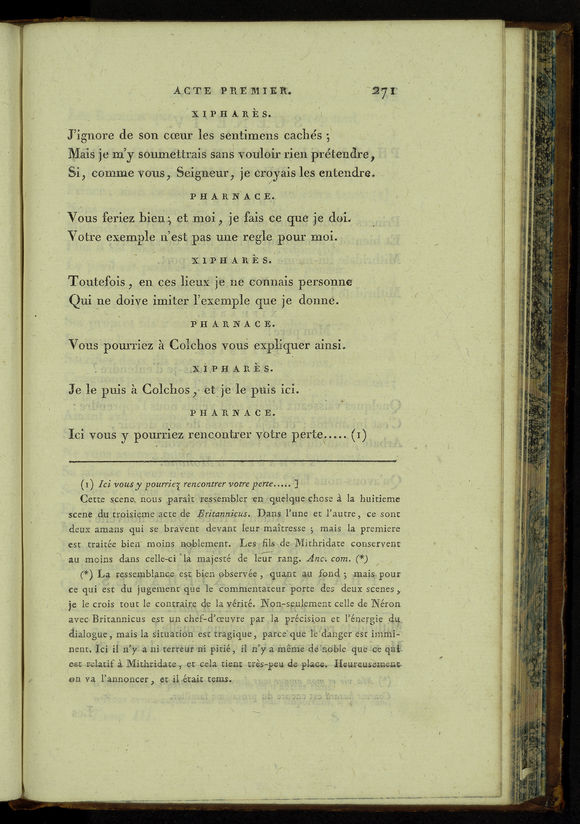 ACTE PREMIER. 271
XIPHARÈS.
J'ignore de son cœur les sentimens cachés ;
Mais je m'y soumettrais sans vouloir rien prétendre,
Si, comme vous, Seigneur, je croyais les entendre.
PHARNACE.
Vous feriez bien ; et moi, je fais ce que je doi.
Votre exemple n'est pas une regle pour moi.
XIPHARÈS.
Toutefois, en ces lieux je ne connais personne
Qui ne doive imiter l'exemple que je donne.
PHARNACE.
Vous pourriez à Colchos vous expliquer ainsi.
XIPHARÈS.
Je le puis à Colchos, et je le puis ici.
PHARNACE.
Ici vous y pourriez rencontrer votre perte..... (1)
(1) Ici vous y pourriez rencontrer votre perte..... ]
Cette scene nous paraît ressembler en quelque chose à la huitieme
scene du troisieme acte de Britannicus. Dans l'une et l'autre, ce sont
deux amans qui se bravent devant leur maîtresse ; mais la premiere
est traitée bien moins noblement. Les fils de Mithridate conservent
au moins dans celle-ci la majesté de leur rang. Anc. com. (*)
(*) La ressemblance est bien observée, quant au fond ; mais pour
ce qui est du jugement que le commentateur porte des deux scenes,
je le crois tout le contraire de la vérité. Non-seulement celle de Néron
avec Britannicus est un chef-d'œuvre par la précision et l'énergie du
dialogue, mais la situation est tragique, parce que le danger est immi-
nent. Ici il n'y a ni terreur ni pitié, il n'y a même de noble que ce qui
est relatif à Mithridate, et cela tient très-peu de place. Heureusement
on va l'annoncer, et il était tems.